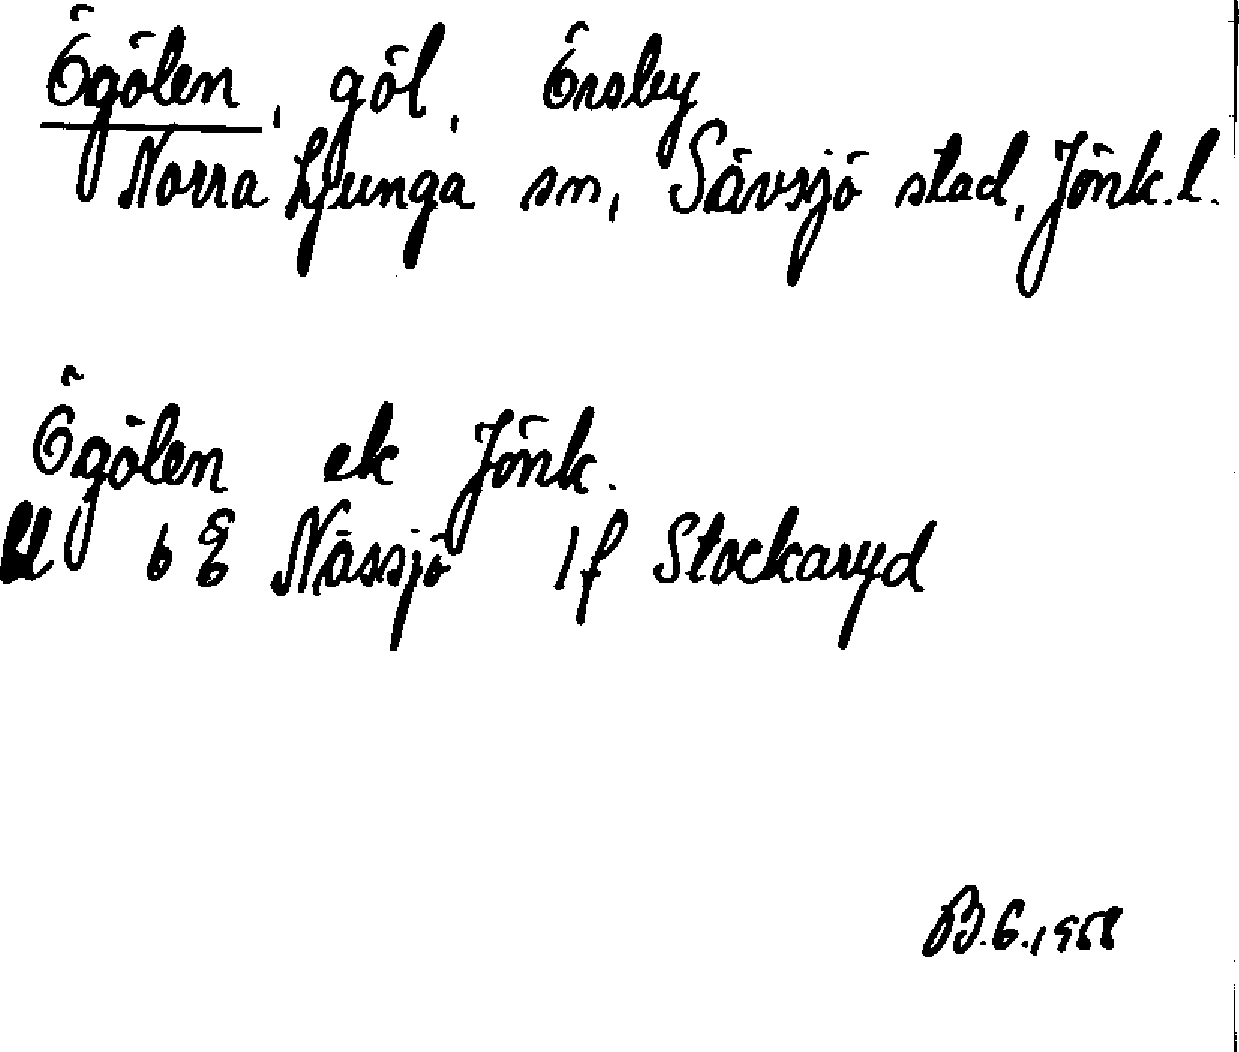 Ögölen, göl, Örsby
Norra Ljunga sn, Sävsjö stad, Jönk.l.
Ögölen ek Jönk.
6 Nässjö 1f Stockaryd
B.G. 1958